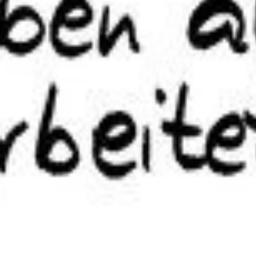 ben a
rbeite